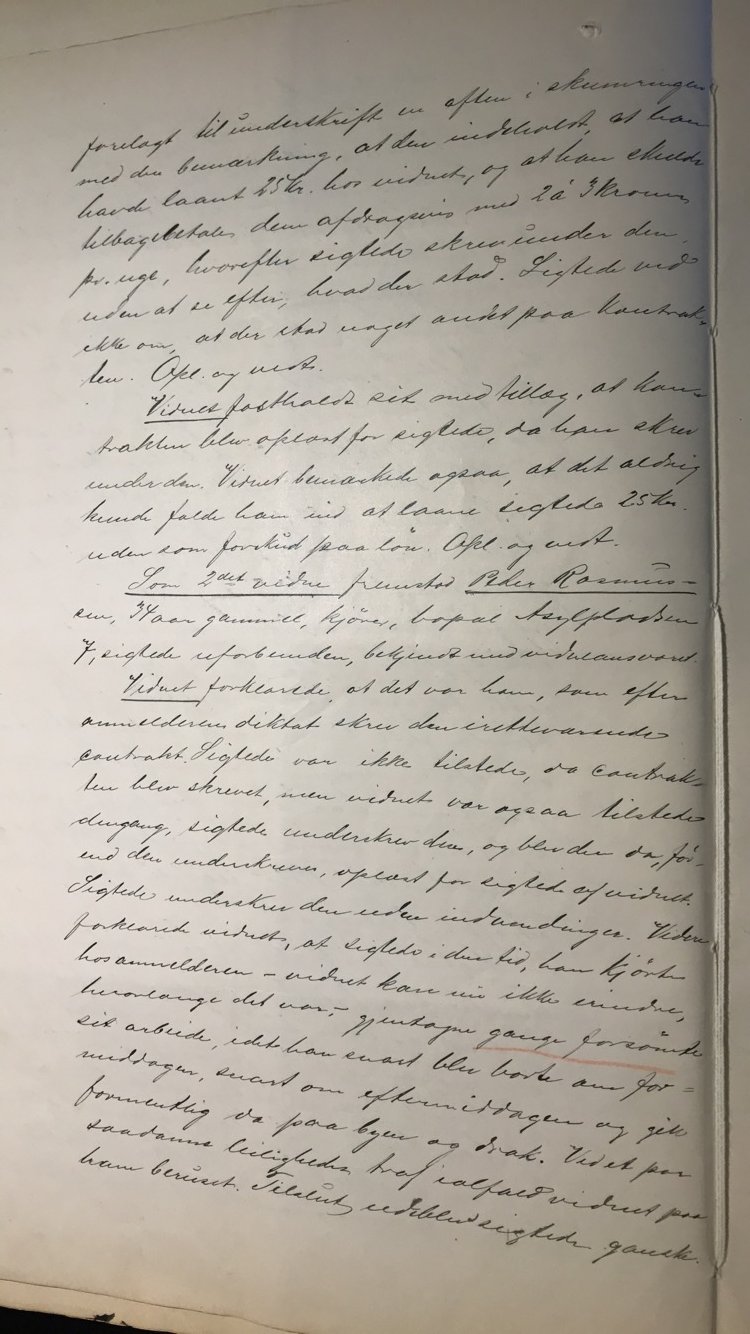 forelagt til underskrift en aften i skumringen
med den bemærkning, at den indeholdt, at han
havde laant 25 kr. hos vidnet, og at han skulde
tilbagebetale dem afdragsvis med 2 à 3 kroner
pr. uge, hvorefter sigtede skrev under den,
uden at se efter, hvad der stod. Sigtede ved
ikke om, at der stod noget andet paa kontrak-
ten. Opl. og vedt.
Vidnet fastholdt sit med tillæg, at kon-
trakten blev oplæst for sigtede, da han skrev
under den. Vidnet bemærkede ogsaa, at det aldrig
kunde falde ham ind at laane sigtede 25 kr.
uden som forskud paa løn. Opl. og vedt.
Som 2det vidne fremstod Peder Rasmus-
sen, 34 aar gammel, kjører, bopæl Asylpladsen
7, sigtede uforbunden, bekjendt med vidneansvaret.
Vidnet forklarede, at det var ham, som efter
anmelderens diktat skrev den iretteværende
contrakt. Sigtede var ikke tilstede, da contrak-
ten blev skrevet, men vidnet var ogsaa tilstede
dengang, sigtede underskrev den, og blev den da, før-
end den underskreves, oplæst for sigtede af vidnet.
Sigtede underskrev den uden indvendinger. Videre
forklarede vidnet, at sigtede i den tid, han kjørte
hos anmelderen – vidnet kan nu ikke erindre,
hvorlænge det var, – gjentagne gange forsømte
sit arbeide, idet han snart blev borte om for-
middagen, snart om eftermiddagen og gik
formentlig da paa byen og drak. Ved et par
saadanne leiligheder traf ialfald vidnet paa
ham beruset. Tilslut udeblev sigtede ganske.